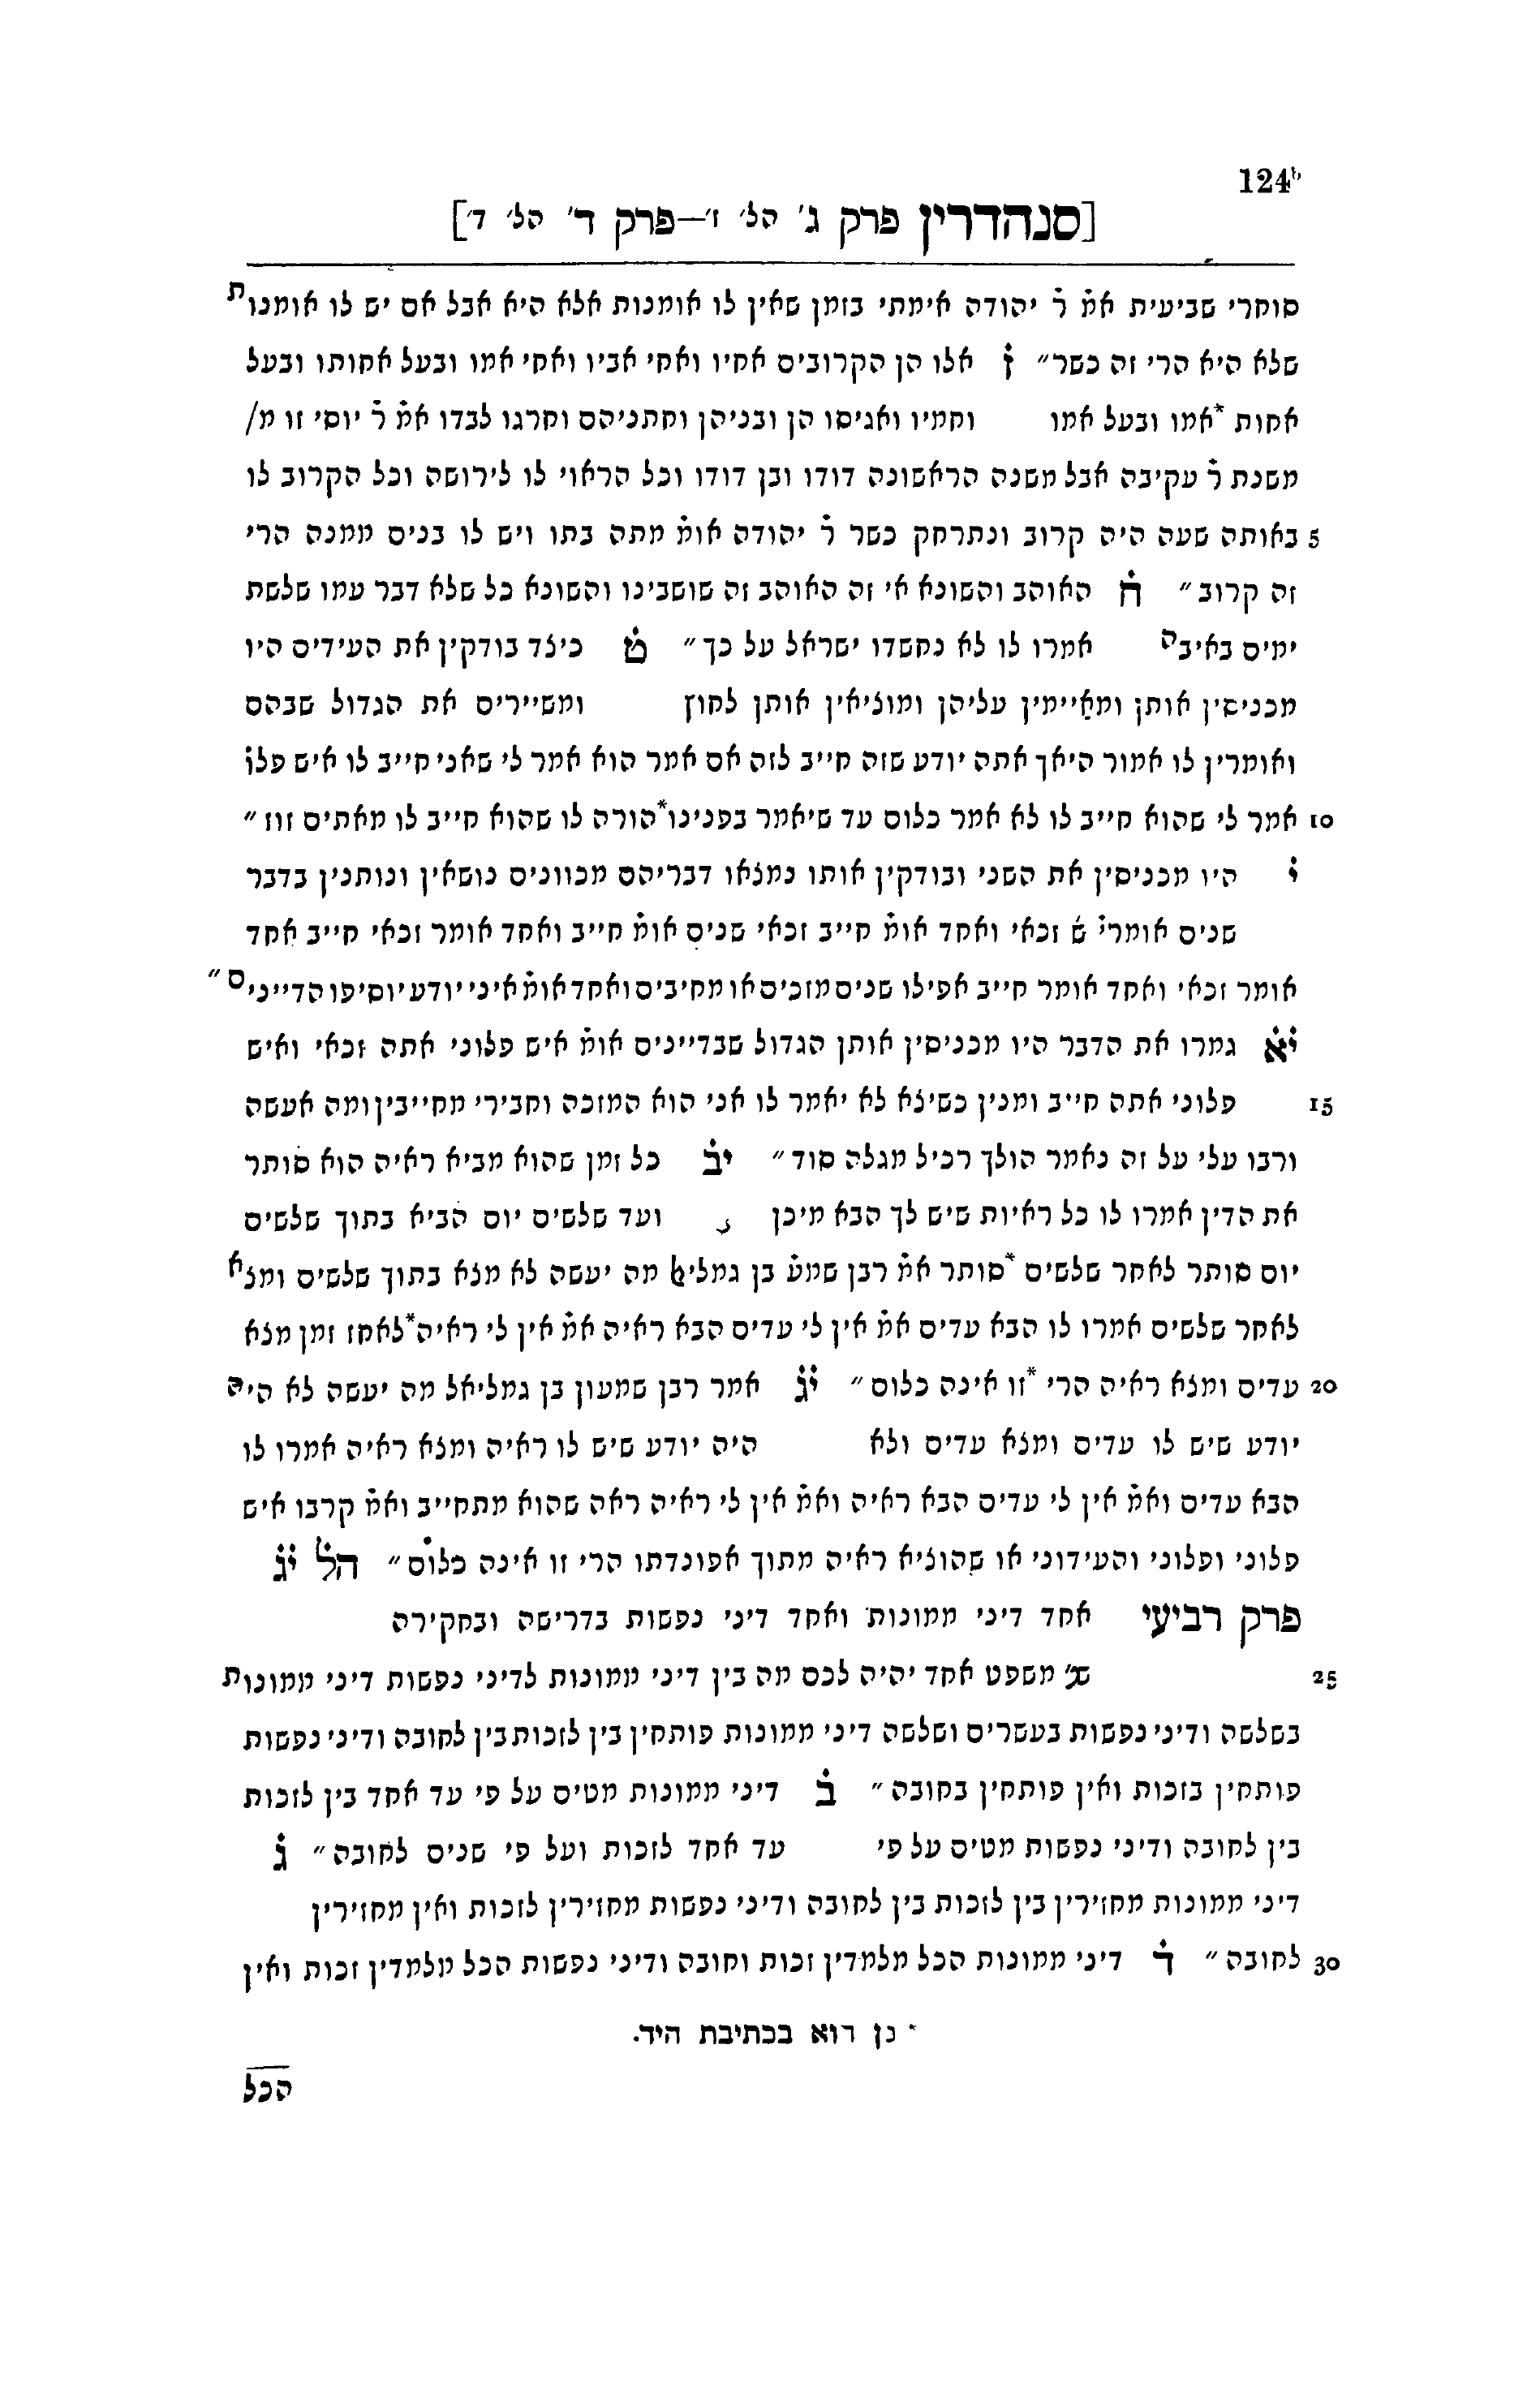 124b
[סנהדרין פרק ג' הל' ז'—פרק ד' הל' ד']
סוחרי שביעית אמ̇ ר̇ יהודה אימתי בזמן שאין לו אומנות אלא היא אבל אם יש לו אומנות
שלא היא הרי זה כשר״ ז̇ אלו הן הקרובים אחיו ואחי אביו ואחי אמו ובעל אחותו ובעל
אחות *אמו ובעל אמו וחמיו ואגיסו הן ובניהן וחתניהם וחרגו לבדו אמ̇ ר̇ יוסי זו מ/
משנת ר̇ עקיבה אבל משנה הראשונה דודו ובן דודו וכל הראוי לו לירושה וכל הקרוב לו
5 באותה שעה היה קרוב ונתרחק כשר ר̇ יהודה אומ̇ מתה בתו ויש לו בנים ממנה הרי
זה קרוב״ ח̇ האוהב והשונא אי זה האוהב זה שושבינו והשונא כל שלא דבר עמו שלשת
ימים באיבה אמרו לו לא נחשדו ישראל על כך״ ט̇ כיצד בודקין את העידים היו
מכניסין אותן ומאיימין עליהן ומוציאין אותן לחוץ ומשיירים את הגדול שבהם
ואומרין לו אמור היאך אתה יודע שזה חייב לזה אם אמר הוא אמר לי שאני חייב לו איש פלו̇
10 אמר לי שהוא חייב לו לא אמר כלום עד שיאמר בפנינו*הורה לו שהוא חייב לו מאתים זוז״
י̇ היו מכניסין את השני ובודקין אותו נמצאו דבריהם מכוונים נושאין ונותנין בדבר
שנים אומרי̇ ש̇ זכאי ואחד אומ̇ חייב זכאי שנים אומ̇ חייב ואחד אומר זכאי חייב אחד
אומר זכאי ואחד אומר חייב אפילו שנים מזכים או מחיבים ואחד אומ̇ איני יודע יוסיפו הדיינים״
י̇א̇ גמרו את הדבר היו מכניסין אותן הגדול שבדיינים אומ̇ איש פלוני אתה זכאי ואיש
15 פלוני אתה חייב ומנין כשיצא לא יאמר לו אני הוא המזכה וחבירי מחייבין ומה אעשה
ורבו עלי על זה נאמר הולך רכיל מגלה סוד״ יב̇ כל זמן שהוא מביא ראיה הוא סותר
את הדין אמרו לו כל ראיות שיש לך הבא מיכן ועד שלשים יום הביא בתוך שלשים
יום סותר לאחר שלשים *סותר אמ̇ רבן שמע̇ בן גמליאל מה יעשה לא מצא בתוך שלשים ומצא
לאחר שלשים אמרו לו הבא עדים אמ̇ אין לי עדים הבא ראיה אמ̇ אין לי ראיה*לאחז זמן מצא
20 עדים ומצא ראיה הרי *זו אינה כלום״ י̇ג̇ אמר רבן שמעון בן גמליאל מה יעשה לא היה
יודע שיש לו עדים ומצא עדים ולא היה יודע שיש לו ראיה ומצא ראיה אמרו לו
הבא עדים ואמ̇ אין לי עדים הבא ראיה ואמ̇ אין לי ראיה ראה שהוא מתחייב ואמ̇ קרבו איש
פלוני ופלוני והעידוני או שהוציא ראיה מתוך אפונדתו הרי זו אינה כלום̇״ הל̇ י̇ג̇
פרק רביעי אחד דיני ממונות ואחד דיני נפשות בדרישה ובחקירה
25 שנ' משפט אחד יהיה לכם מה בין דיני ממונות לדיני נפשות דיני ממונות
בשלשה ודיני נפשות בעשרים ושלשה דיני ממונות פותחין בין לזכות בין לחובה ודיני נפשות
פותחין בזכות ואין פותחין בחובה״ ב̇ דיני ממונות מטים על פי עד אחד בין לזכות
בין לחובה ודיני נפשות מטים על פי עד אחד לזכות ועל פי שנים לחובה״ ג̇
דיני ממונות מחזירין בין לזכות בין לחובה ודיני נפשות מחזירין לזכות ואין מחזירין
30 לחובה״ ד̇ דיני ממונות הכל מלמדין זכות וחובה ודיני נפשות הכל מלמדין זכות ואין
* כן הוא בכתיבת היד.
הכל